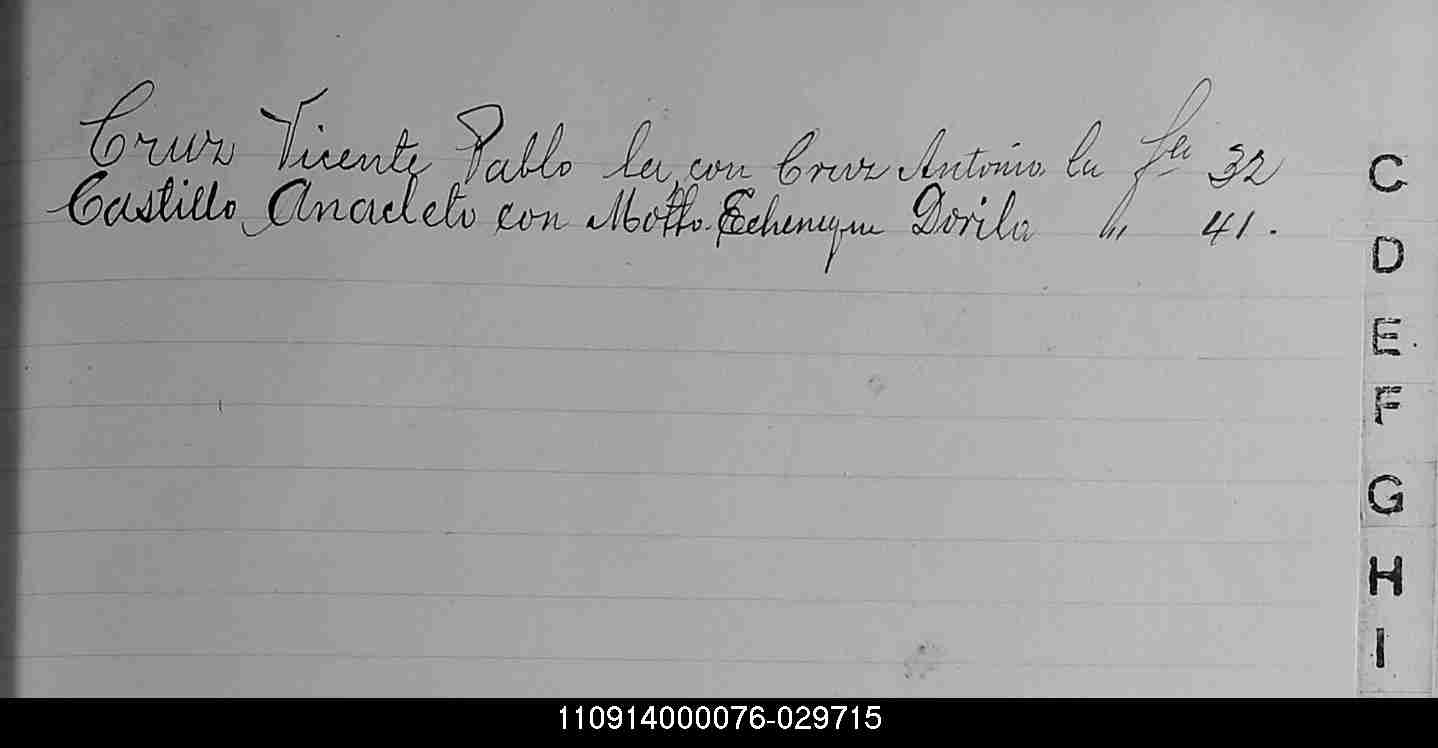 Cruz Vicente Pablo la con Cruz Antonio la fa 32
Castillo Anacleto con Motto Echenique Dorila " 41.
C
D
E
F
G
H
I
110914000076-029715